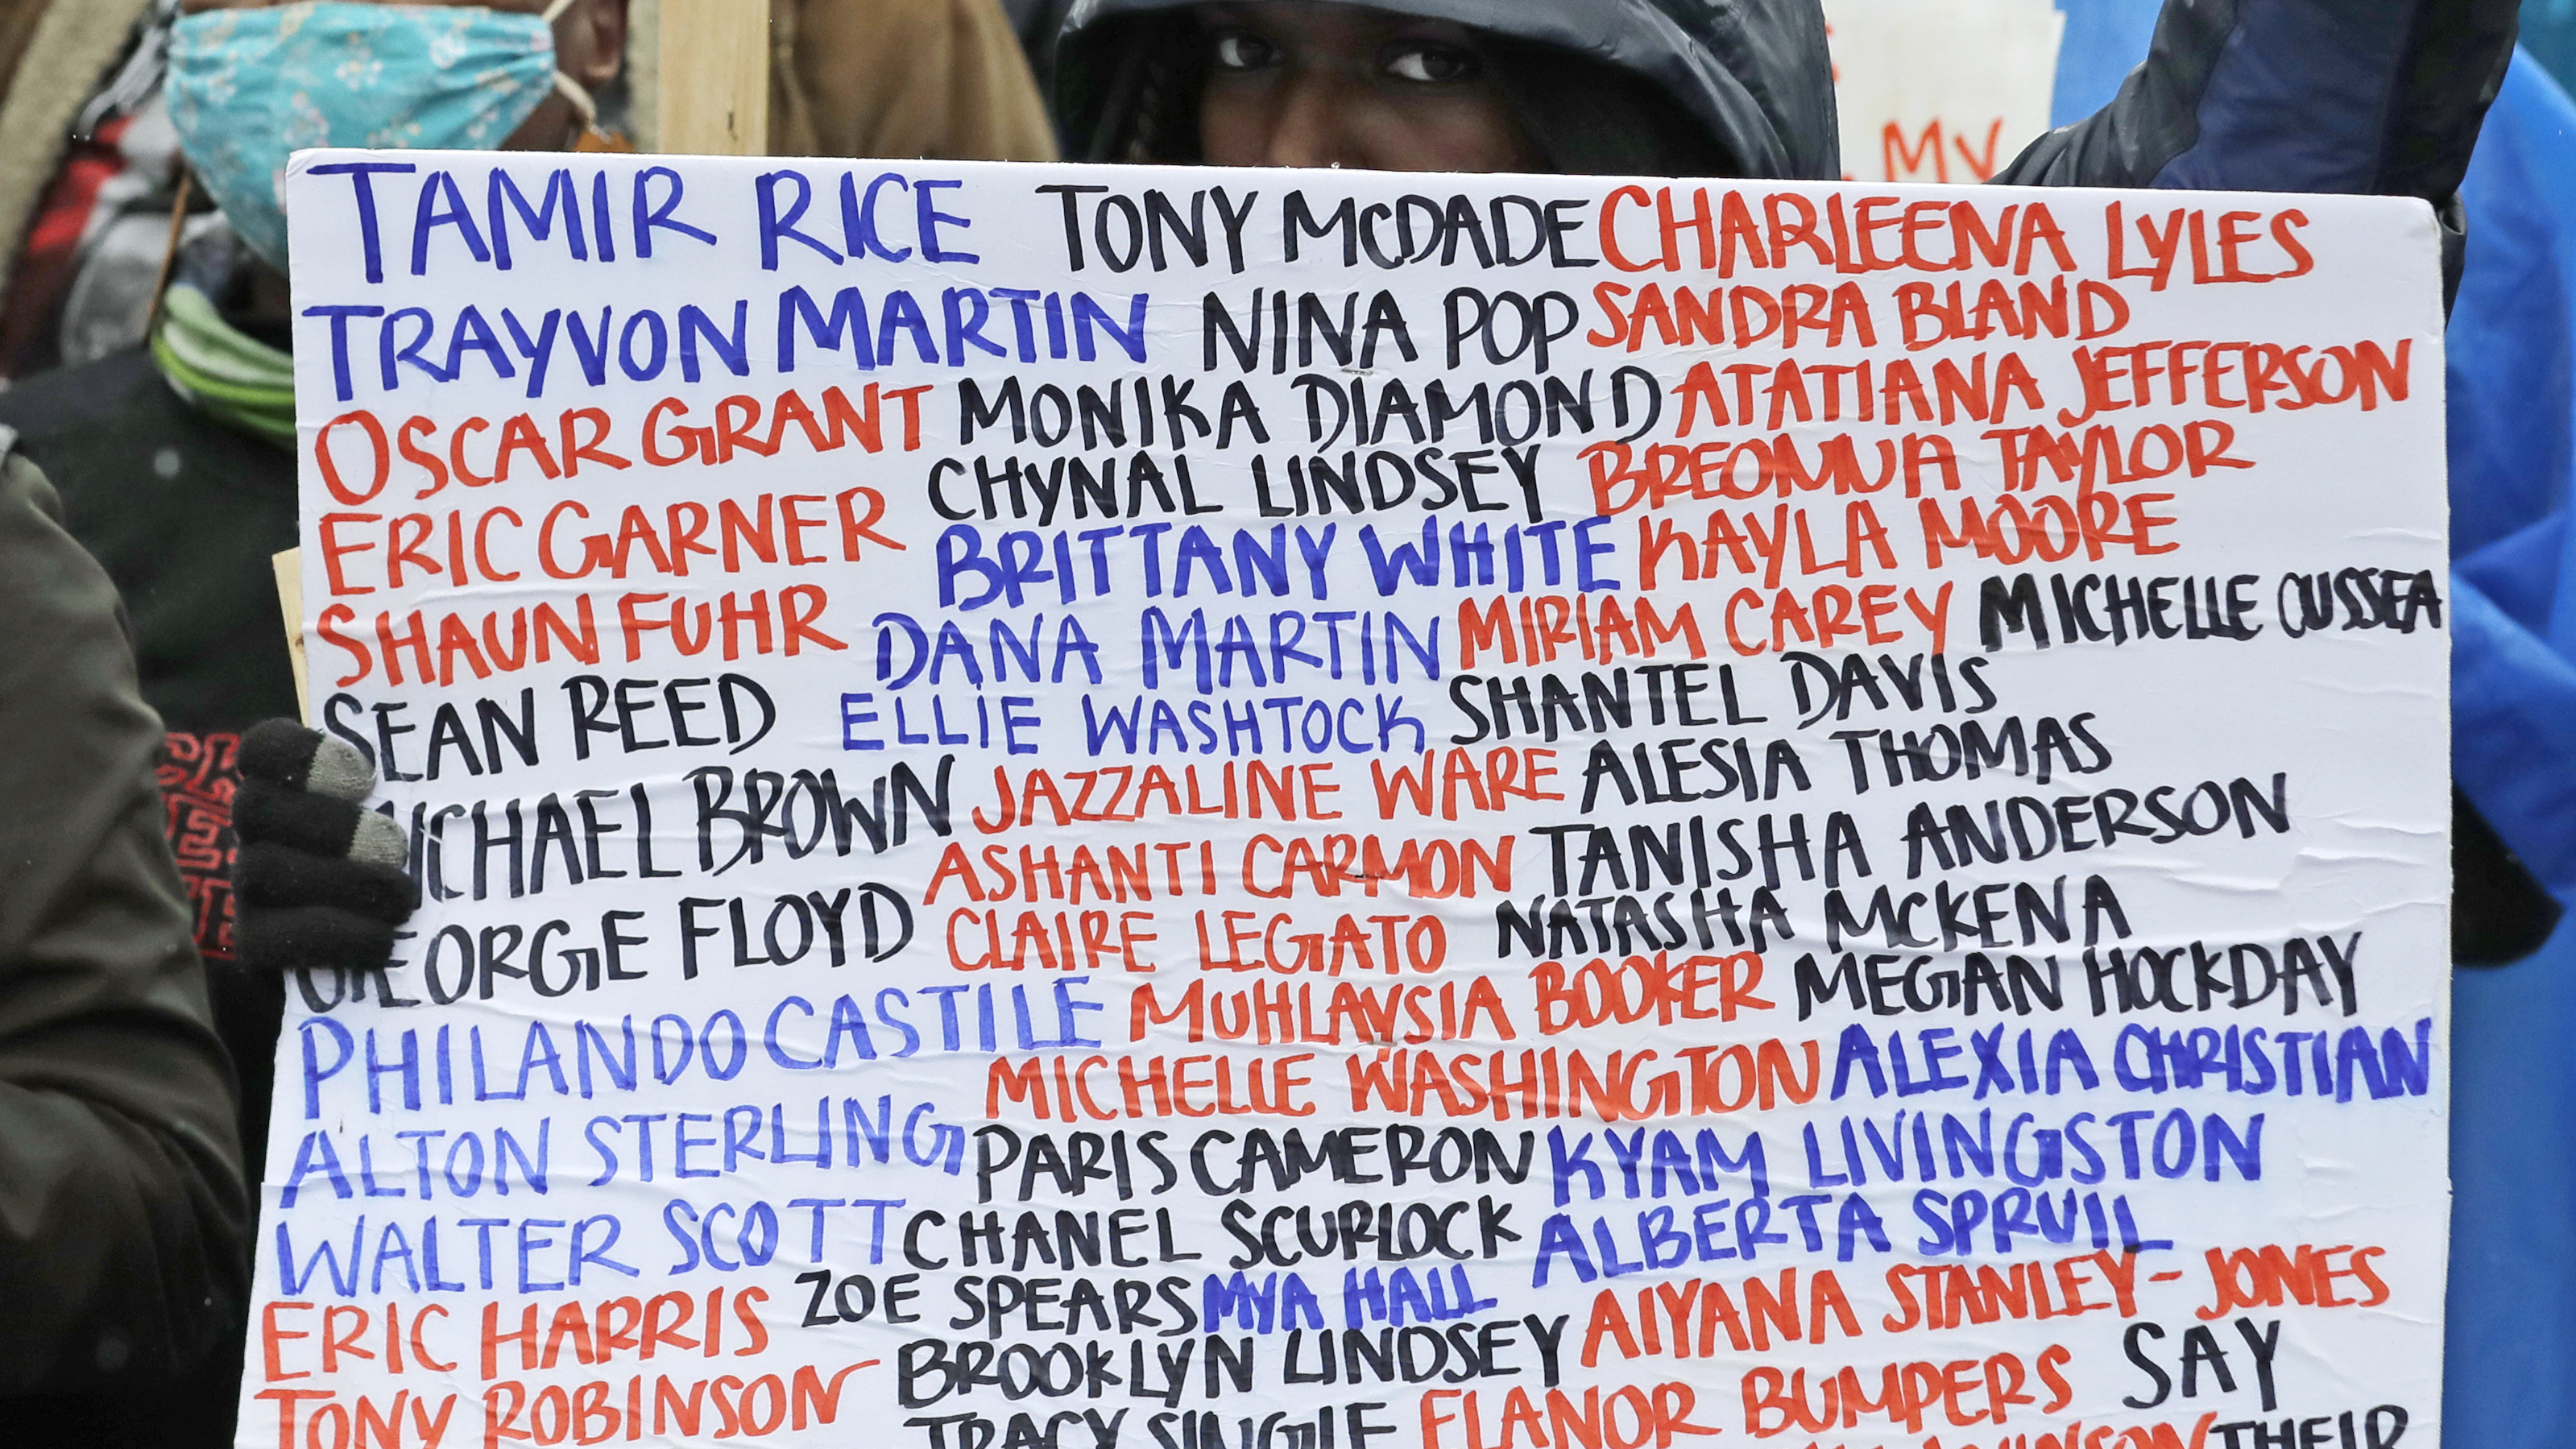 MY
TAMIR RICE TONY MCDADE CHARLEENA LYLES
TRAYVON MARTIN NINA POP SANDRA BLAND
OSCAR GRANT MONIKA DIAMOND ATATIANA JEFFERSON
ERIC GARNER CHYNAL LINDSEY BREONNA TAYLOR
SHAUN FUHR BRITTANY WHITE KAYLA MOORE
SEAN REED DANA MARTIN MIRIAM CAREY MICHELLE CUSSEA
ELLIE WASHTOCK SHANTEL DAVIS
MICHAEL BROWN JAZZALINE WARE ALESIA THOMAS
GEORGE FLOYD ASHANTI CARMON TANISHA ANDERSON
CLAIRE LEGATO NATASHA MCKENA
PHILANDO CASTILE MUHLAYSIA BOOKER MEGAN HOCKDAY
MICHELLE WASHINGTON ALEXIA CHRISTIAN
ALTON STERLING PARIS CAMERON KYAM LIVINGSTON
WALTER SCOTT CHANEL SCURLOCK ALBERTA SPRUIL
ERIC HARRIS ZOE SPEARS MYA HALL AIYANA STANLEY-JONES
TONY ROBINSON BROOKLYN LINDSEY ELANOR BUMPERS SAY
TRACY SINGLE THEIR